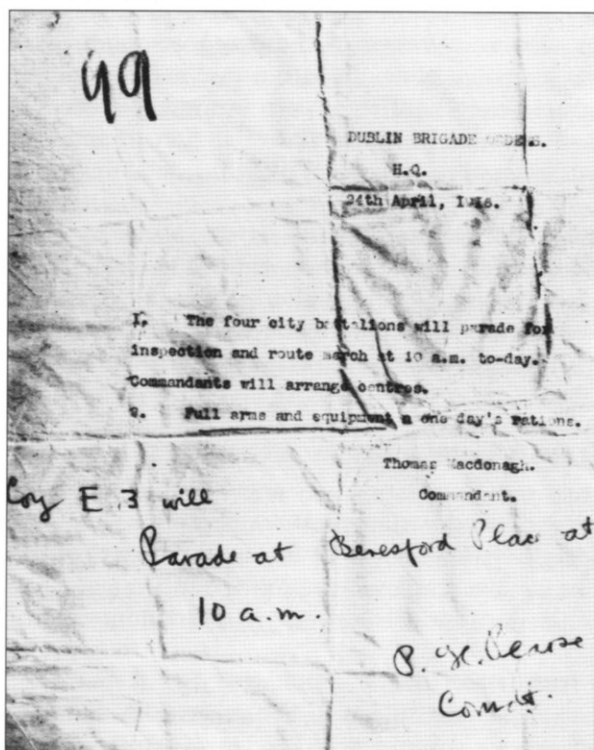 99
DUBLIN BRIGADE ORDERS.
H.Q.
24th April, 1916.
I. The four city battalions will parade for
inspection and route march at 10 a.m. to-day.
Commandants will arrange centres.
2. Full arms and equipment & one day's rations.
Thomas Macdonagh.
Commandant.
Coy E. 3 will
Parade at Beresford Place at
10 a.m.
P. H. Pearse
Comdt.